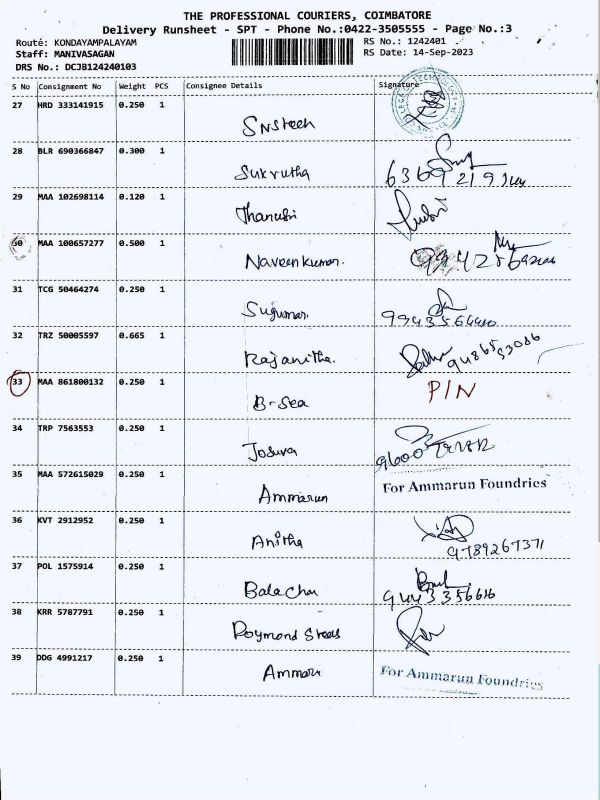 THE PROFESSIONAL COURIERS, COIMBATORE
Delivery Runsheet - SPT - Phone No.:0422-3505555 - Page No.:3
Route: KONDAYAMPALAYAM
RS No.: 1242401
Staff: MANIVASAGAN
RS Date: 14-Sep-2023
DRS No.: DCJB124240103
S No Consignment No Weight PCS Consignee Details Signature
27 HRD 333141915 0.250 1
28 BLR 690366847 0.300 1
Sukrutha
29 MAA 102698114 0.120 1
Thanusri
30 MAA 100657277 0.500 1
Naveenkumar.
31 TCG 50464274 0.250 1
Sugumar
32 TRZ 50005597 0.665 1
Rajanitha.
33 MAA 861800132 0.250 1
B-Sea PIN
34 TRP 7563553 0.250 1
Josuva
35 MAA 572615029 0.250 1
Ammarun For Ammarun Foundries
36 KVT 2912952 0.250 1
Anitha 9789267371
37 POL 1575914 0.250 1
38 KRR 5787791 0.250 1
39 DDG 4991217 0.250 1
For Ammarun Foundries